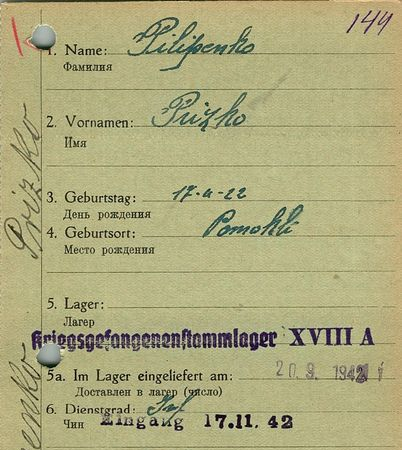 144
1. Name: Pilipenko
Фамилия
2. Vornamen: Prizko
Имя
3. Geburtstag: 17-4-22
День рождения
4. Geburtsort: Pomokli
Место рождения
5. Lager:
Лагер
Kriegsgefangenenstammlager XVIII A
5a. Im Lager eingeliefert am: 20.9.1942
Доставлен в лагер (число)
6. Dienstgrad:
Чин Eingang 17.11.42
Prizko
enko